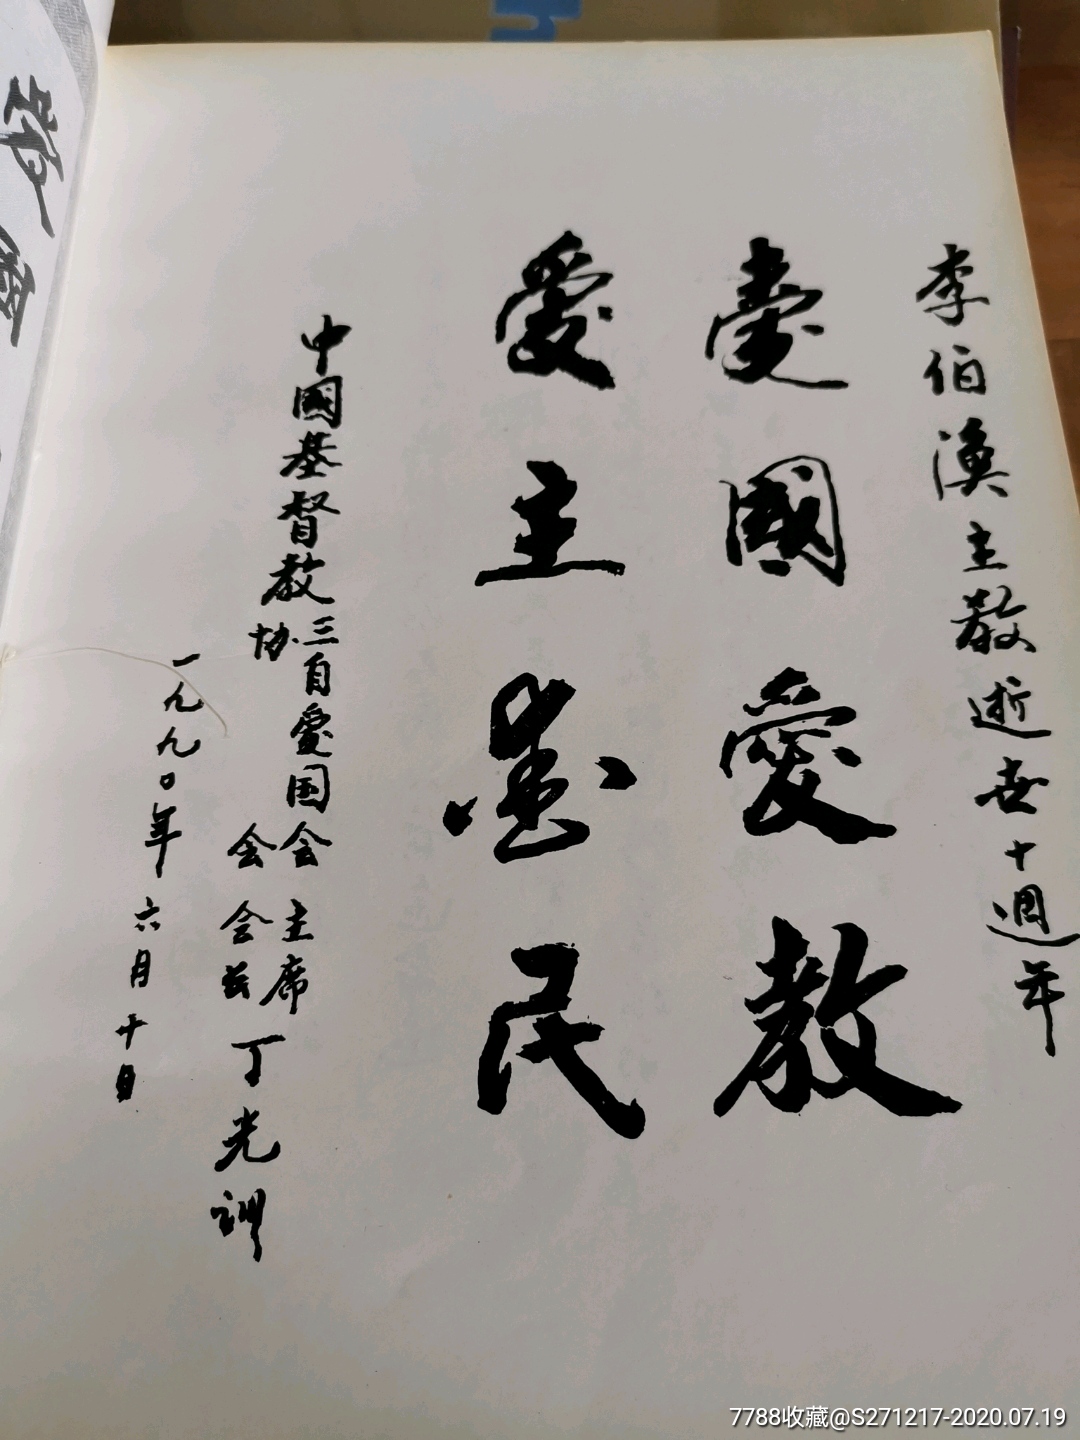 李伯漁主教逝世十週年
愛國愛教
愛主愛民
中國基督教三自愛国会主席
协会会长
丁光訓
一九九〇年六月十日
7788收藏@S271217-2020.07.19